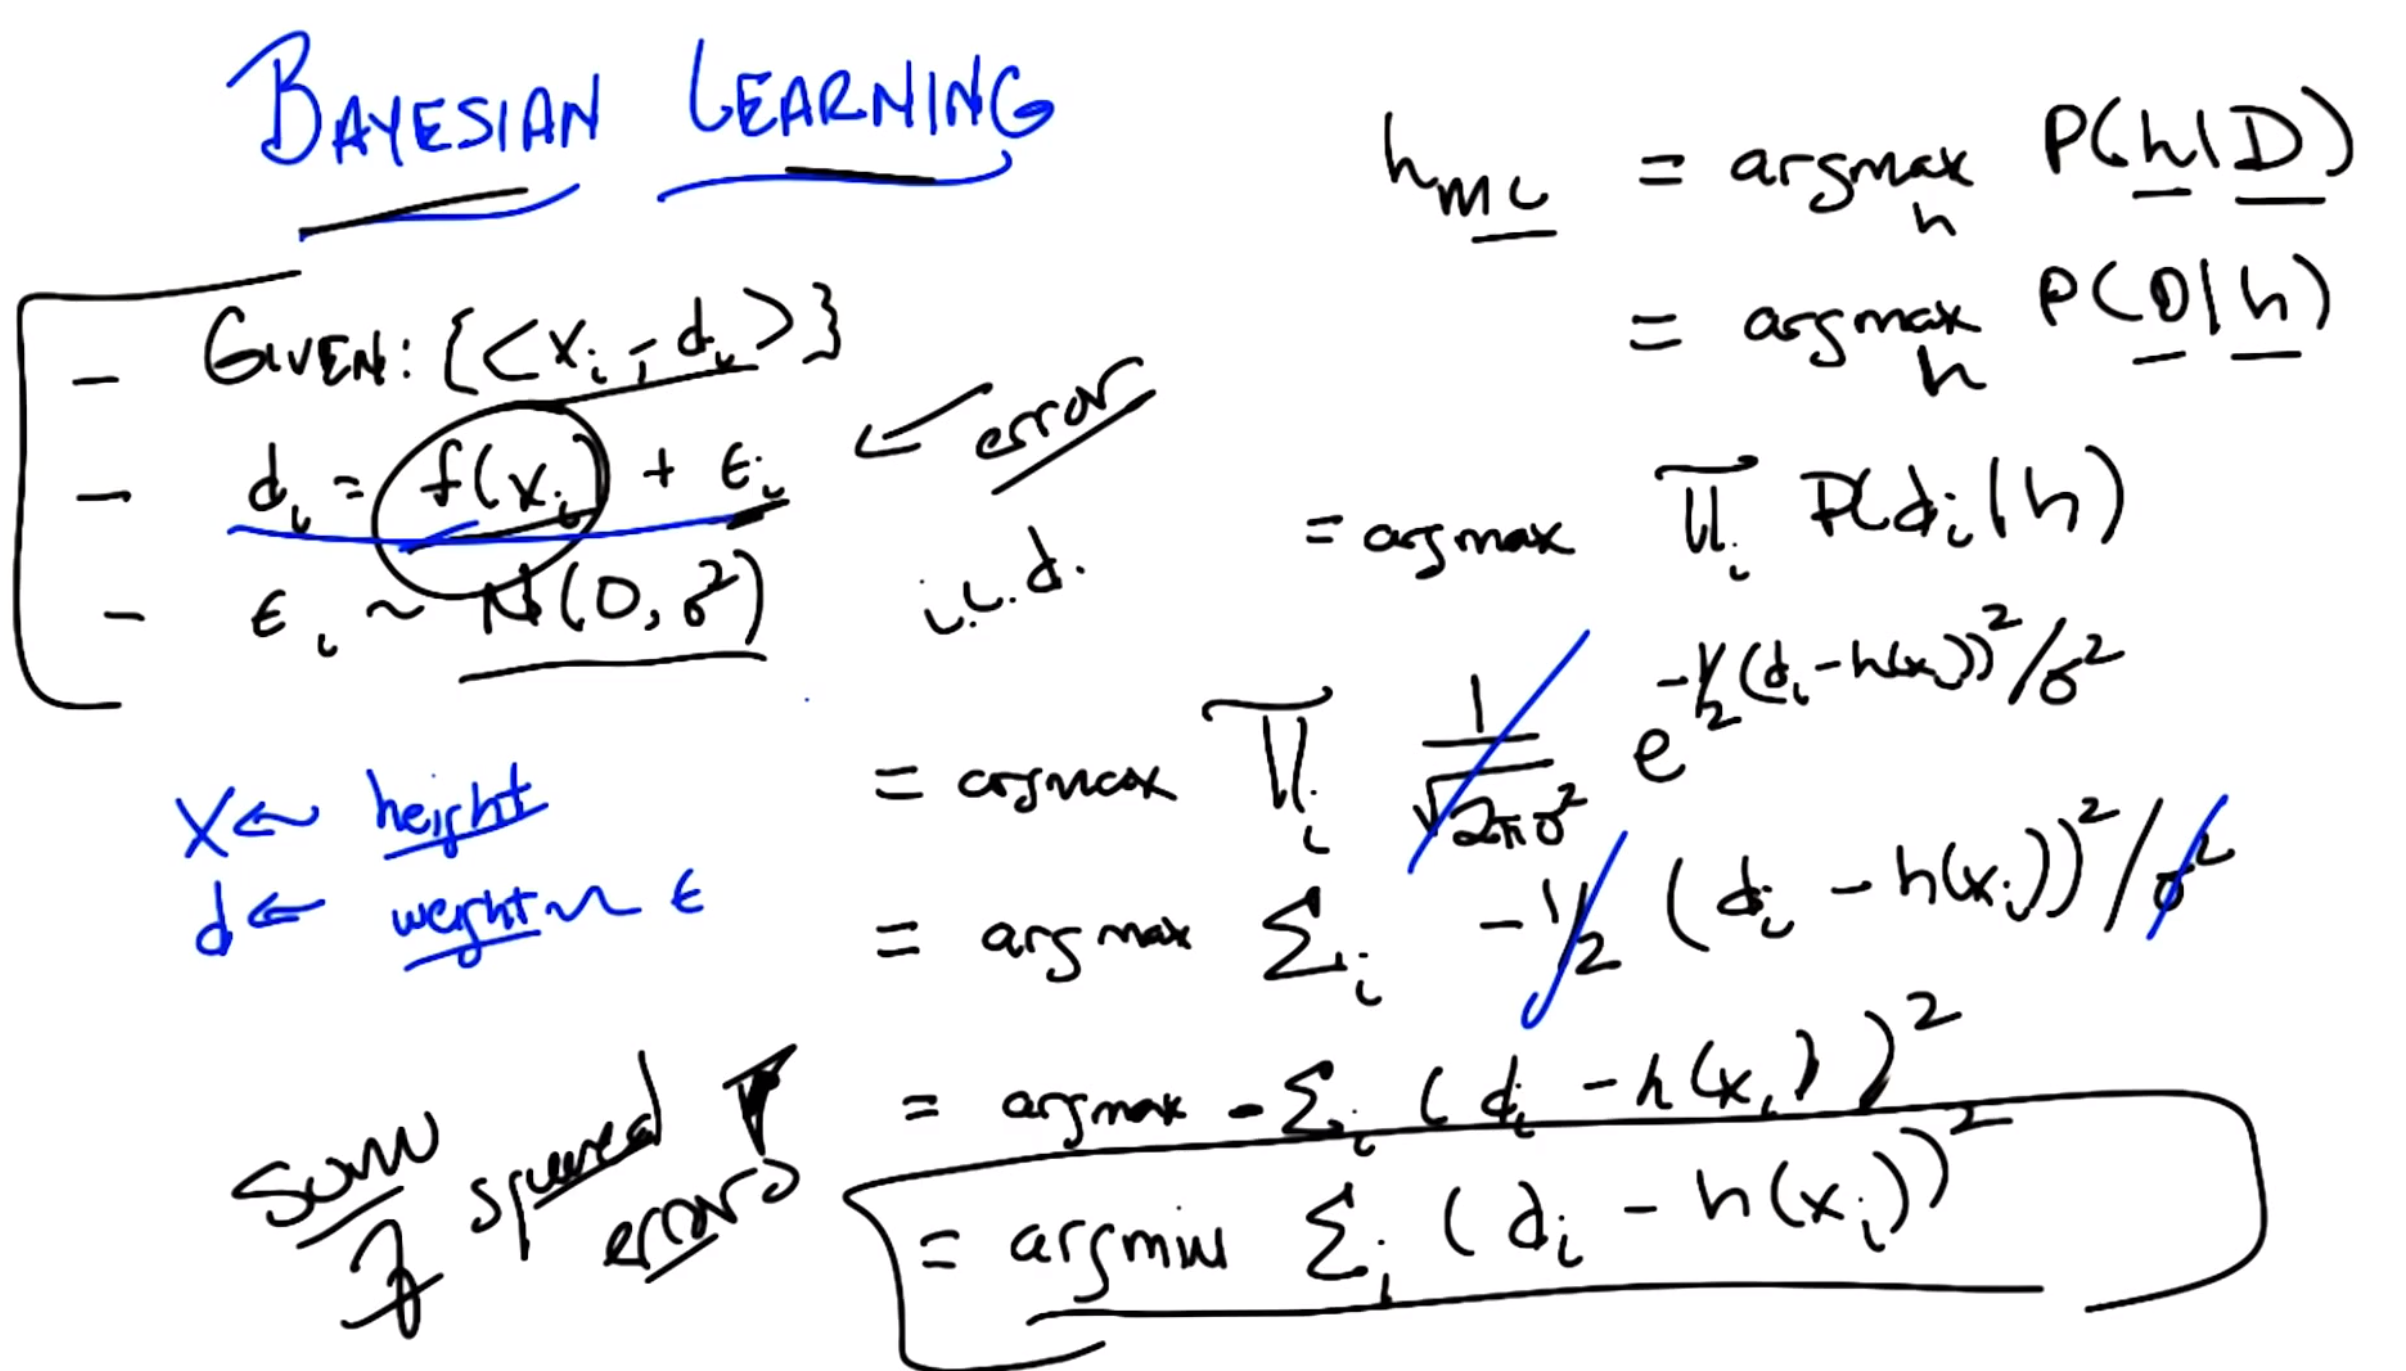 BAYESIAN LEARNING
- GIVEN: {<xᵢ, dᵢ>}
- dᵢ = f(xᵢ) + ϵᵢ ← error
- ϵᵢ ~ N(0, σ²) i.i.d.
x ← height
d ← weight ~ ϵ
h_ML = argmax_h P(h|D)
= argmax_h P(D|h)
= argmax ∏ᵢ P(dᵢ|h)
= argmax ∏ᵢ 1/√(2πσ²) e^(-1/2 (dᵢ - h(xᵢ))²/σ²)
= argmax Σᵢ -1/2 (dᵢ - h(xᵢ))²/σ²
= argmax -Σᵢ (dᵢ - h(xᵢ))²
= argmin Σᵢ (dᵢ - h(xᵢ))²
sum of squared errors